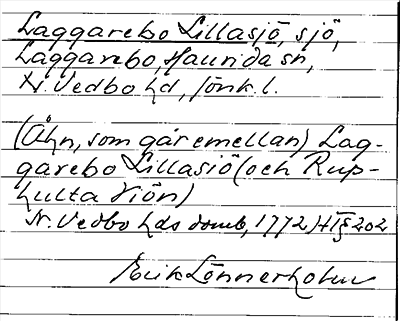 Laggarebo Lillasjö, sjö,
Laggarebo Haurida sn,
N. Vedbo hd, Jönk. l.
(Åhn, som går emellan) Lag-
garebo Lillasiö (och Rup-
hulta Siön)
N. Vedbo hds domb, 1772 Ht § 202
Erik Lönnerholm